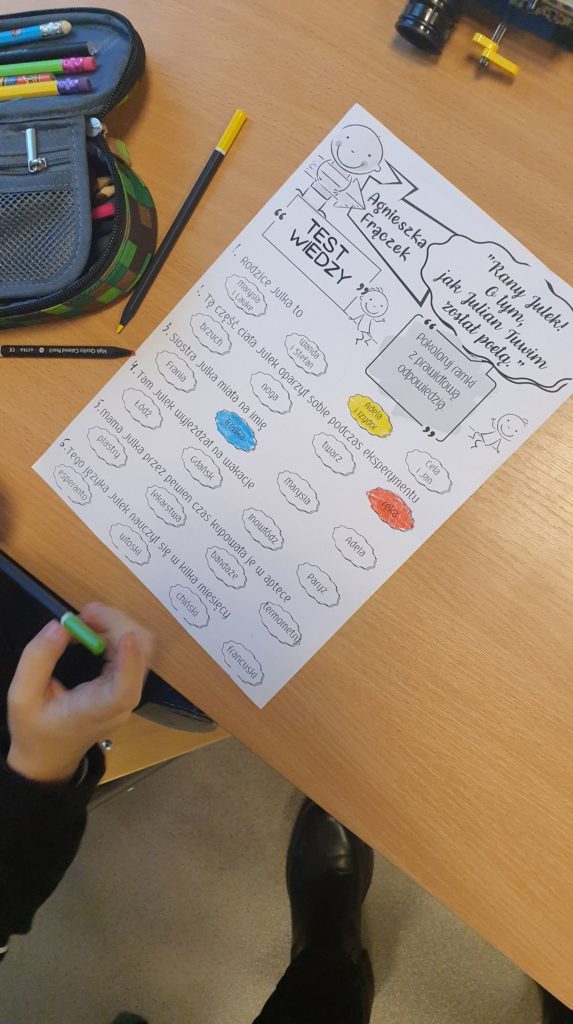 Agnieszka
Frączek
"Rany Julek!
O tym,
jak Julian Tuwim
został poetą."
TEST
WIEDZY
Pokoloruj ramki
z prawidłową
odpowiedzią.
1. Rodzice Julka to
marysia
wanda
i stefan
Adela
i Izydor
Cela
i Jan
2. Tą część ciała Julek oparzył sobie podczas eksperymentu
brzuch
noga
twarz
ręka
3. Siostra Julka miała na imię
Frania
Irenka
marysia
Adela
4. Tam Julek wyjeżdżał na wakacje
Łódź
Gdańsk
Inowłódz
Paryż
5. mama Julka przez pewien czas kupowała je w aptece
plastry
lekarstwa
bandaże
termometry
6. Tego języka Julek nauczył się w kilka miesięcy
esperanto
włoski
chiński
francuski
High Quality Colored Pencil